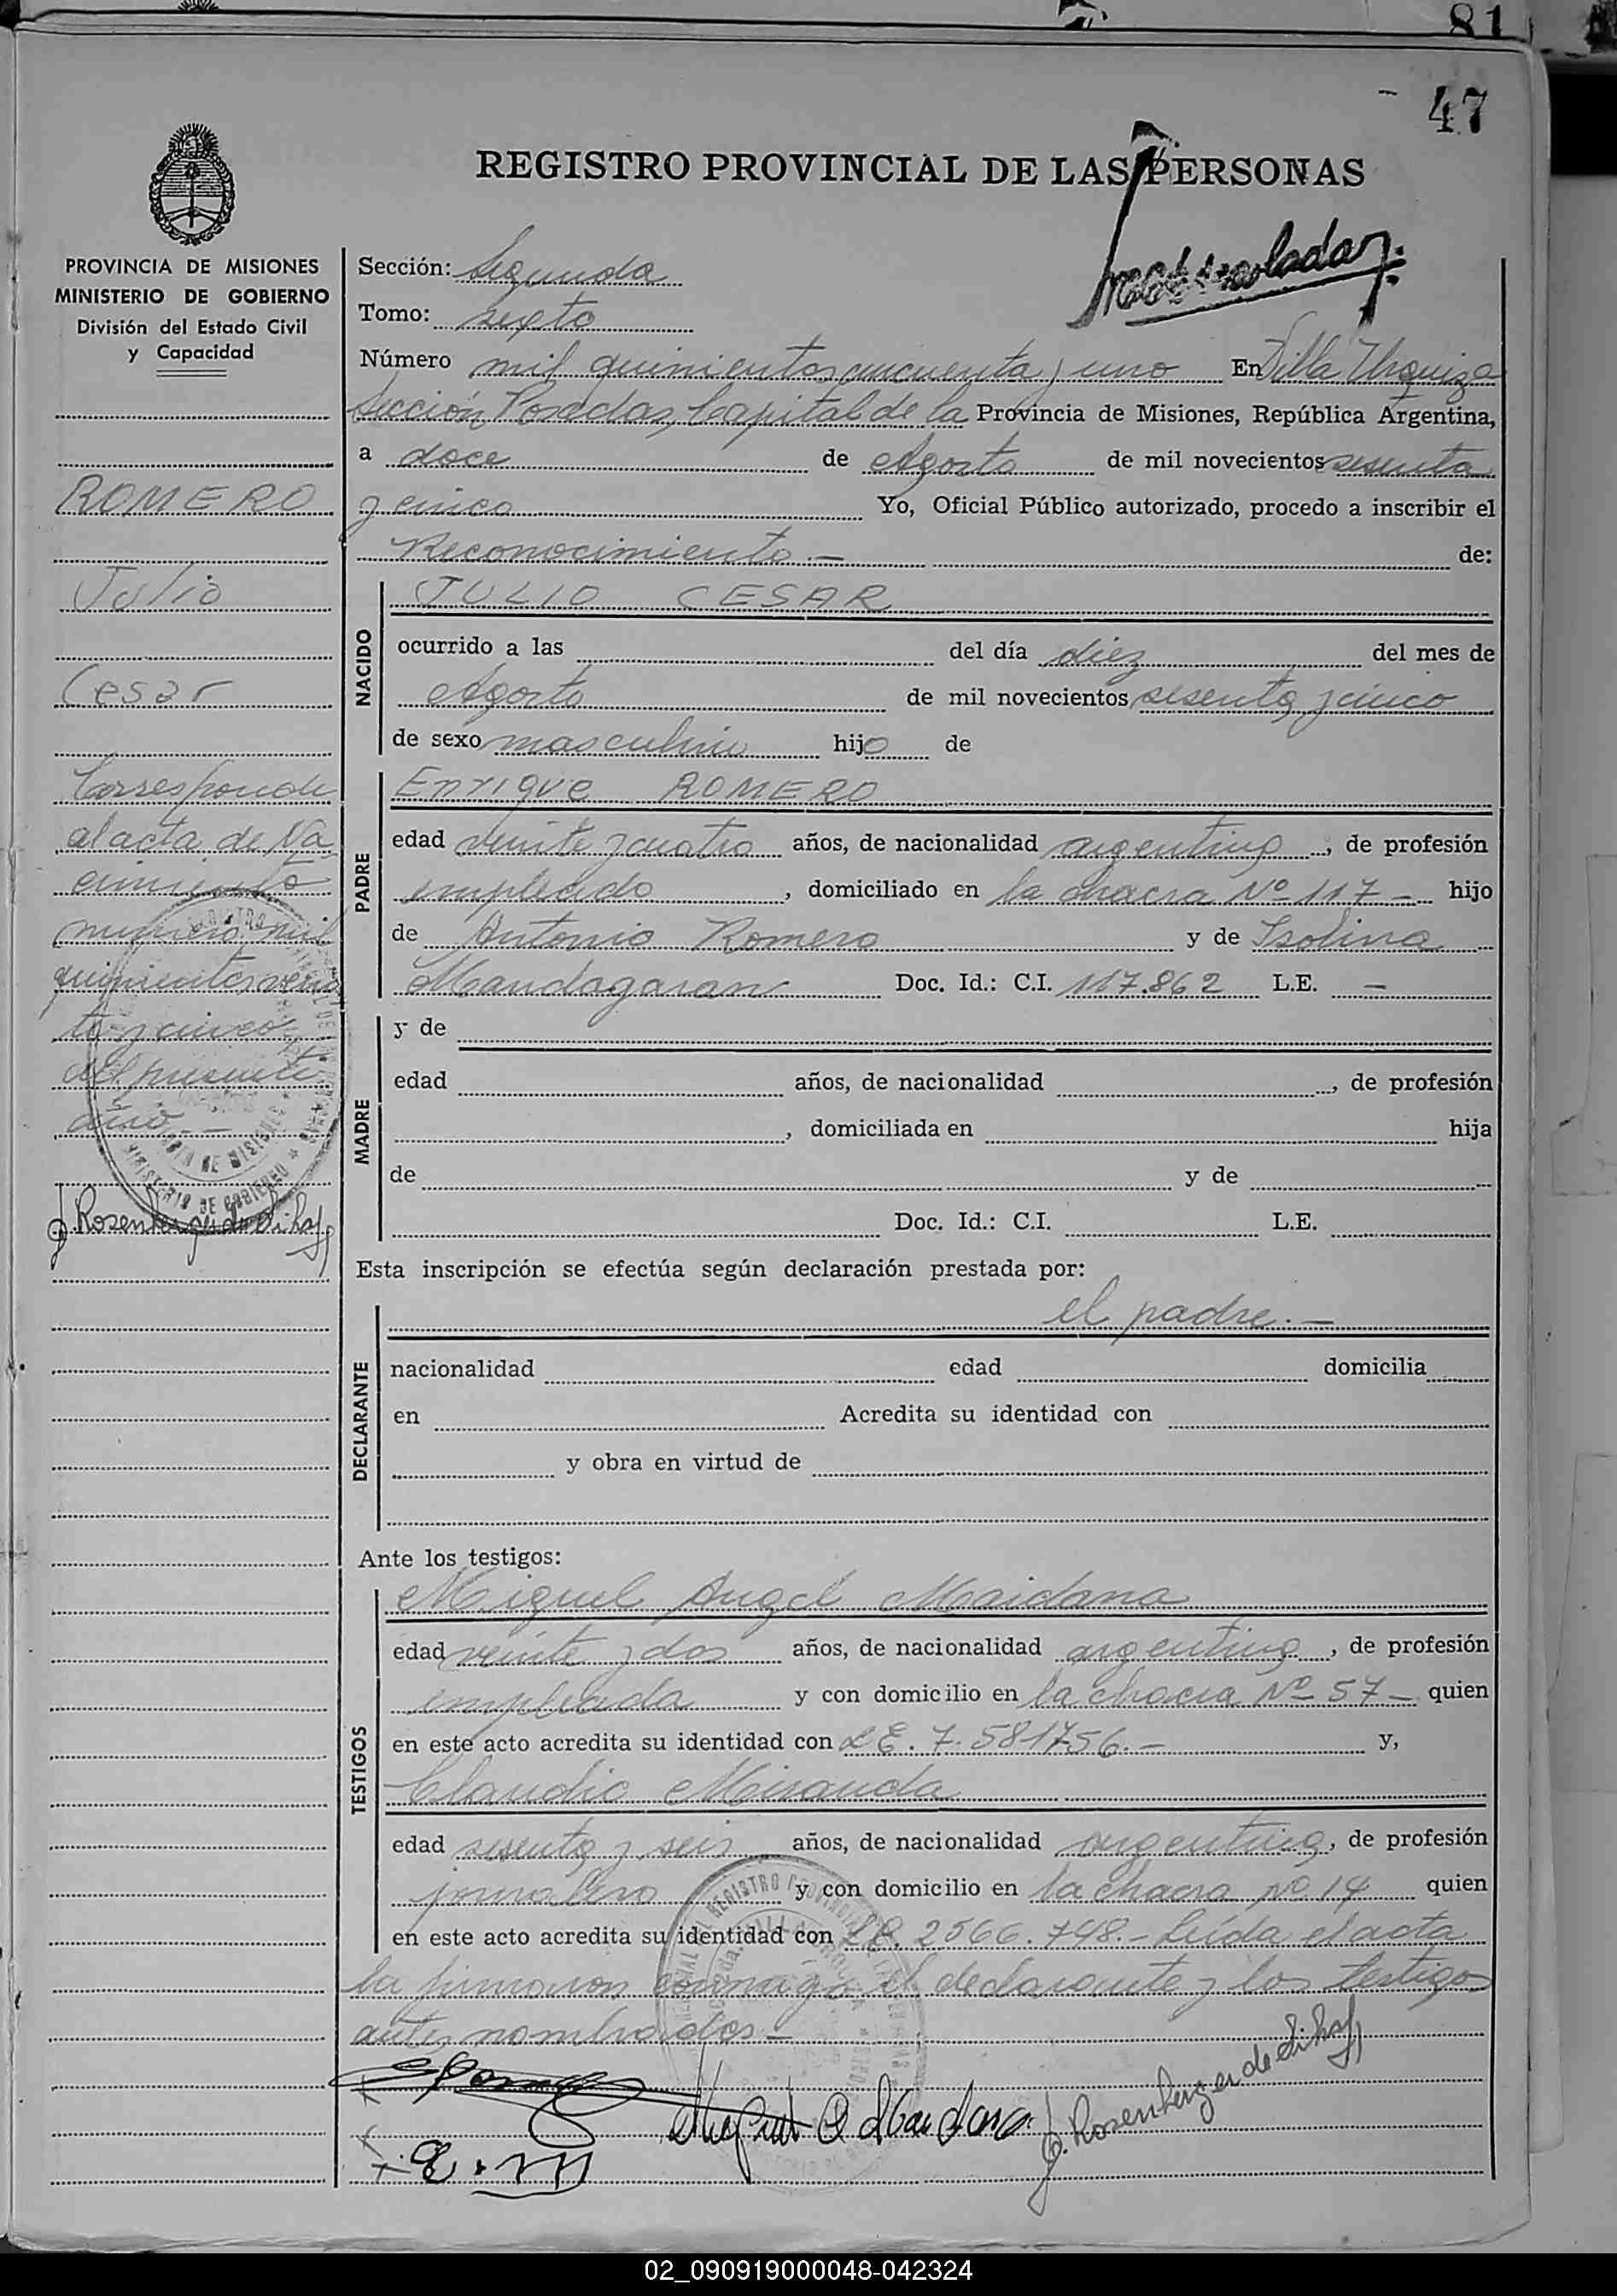 81
47
REGISTRO PROVINCIAL DE LAS PERSONAS
PROVINCIA DE MISIONES
MINISTERIO DE GOBIERNO
División del Estado Civil
y Capacidad
ROMERO
Julio
Cesar
Corresponde
al acta de Na
cimiento
numero mil
quinientos vein
te y cinco
del presente
año.-
J. Rosenberger de Di hay
Sección: Segunda
Tomo: sexto
Número mil quinientos cincuenta y uno En Villa Urquiza
Sección Posadas, Capital de la Provincia de Misiones, República Argentina,
a doce de Agosto de mil novecientos sesenta
y cinco Yo, Oficial Público autorizado, procedo a inscribir el
Reconocimiento.- de:
NACIDO
JULIO CESAR
ocurrido a las del día diez del mes de
Agosto de mil novecientos sesenta y cinco
de sexo masculino hijo de
PADRE
Enrique ROMERO
edad veinte y cuatro años, de nacionalidad argentino, de profesión
empleado, domiciliado en la chacra Nº 117 - hijo
de Antonio Romero y de Isolina
Mandagaran Doc. Id.: C.I. 117.862 L.E. -
MADRE
y de
edad años, de nacionalidad , de profesión
, domiciliada en hija
de y de
Doc. Id.: C.I. L.E.
Esta inscripción se efectúa según declaración prestada por:
el padre.-
DECLARANTE
nacionalidad edad domicilia
en Acredita su identidad con
y obra en virtud de
Ante los testigos:
TESTIGOS
Miguel Angel Maidana
edad veinte y dos años, de nacionalidad argentina, de profesión
empleada y con domicilio en la chacra Nº 57 - quien
en este acto acredita su identidad con LE. 7.581756.- y,
Claudio Miranda
edad sesenta y seis años, de nacionalidad argentina, de profesión
jornalero y con domicilio en la chacra Nº 14 quien
en este acto acredita su identidad con LE. 2566.748.- Leída el acta
la firmaron conmigo el declarante y los testigos
antes nombrados.-
J. Rosenberger de Di hay
02_090919000048-042324